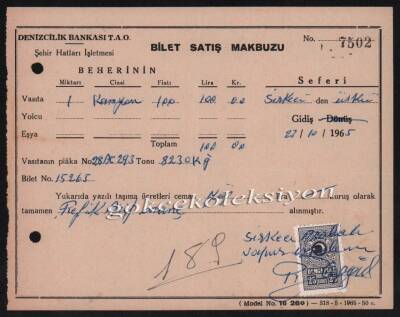 DENİZCİLİK BANKASI T.A.O.
Şehir Hatları İşletmesi
No. 7502
BİLET SATIŞ MAKBUZU
BEHERİNİN
Miktarı Cinsi Fiatı Lira Kr. Seferi
Vasıta 1 Kamyon 100 100 00 Sirkeci den
Yolcu Gidiş Dönüş
Eşya 27/10/1965
Toplam 100 00
Vasıtanın plâka No. 293 Tonu 8230 Kğ
Bilet No. 15265
Yukarıda yazılı taşıma ücretleri ceman kuruş olarak
tamamen Refik alınmıştır.
gökçekoleksiyon
189
Sirkeci
vapur
(Model No. 16 260) — 318 - 5 - 1965 - 50 c.